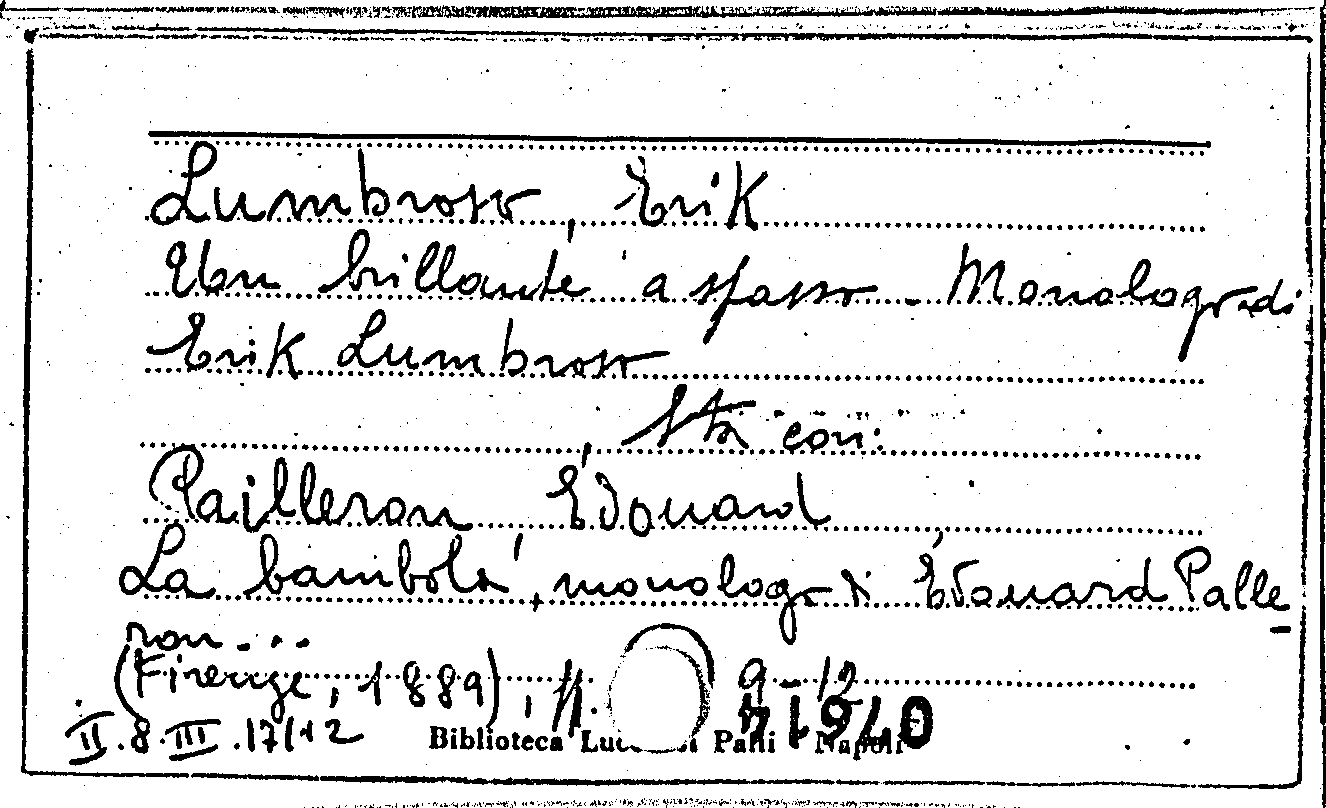 Lumbroso, Erik
Un brillante a spasso - Monologo di
Erik Lumbroso
Sta con:
Pailleron, Édouard
La bambola, monologo di Édouard Palle
ron...
(Firenze, 1889), pp. 9-12
II.8.III.17/12
Biblioteca Palli Napoli